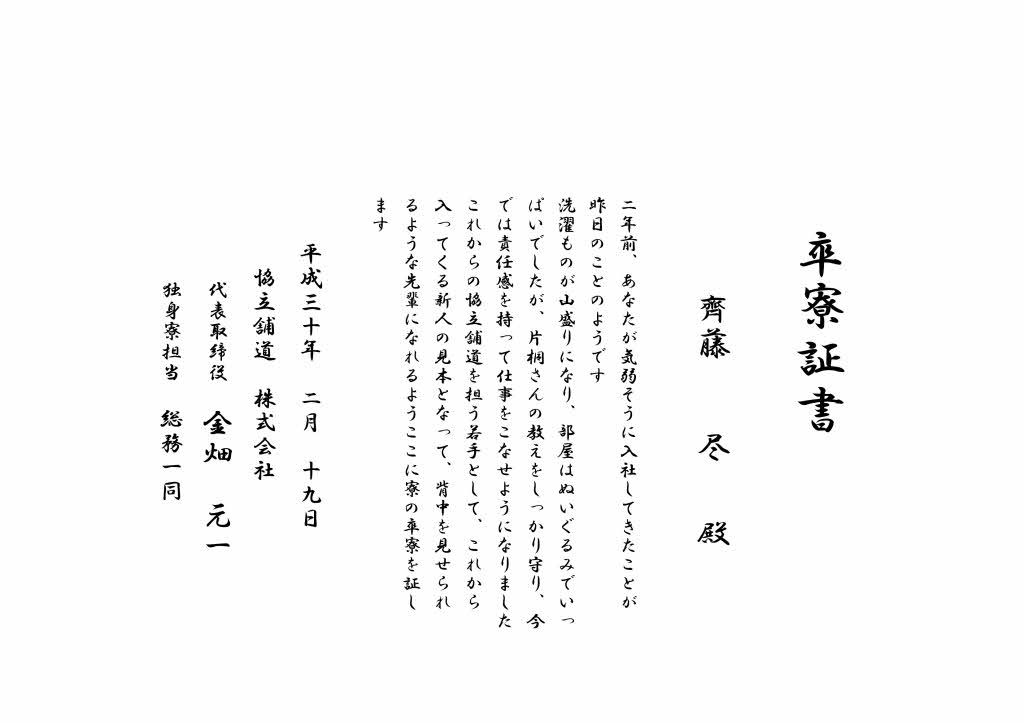 卒寮証書
齊藤　尽　殿
二年前、あなたが気弱そうに入社してきたことが
昨日のことのようです
洗濯ものが山盛りになり、部屋はぬいぐるみでいっ
ぱいでしたが、片桐さんの教えをしっかり守り、今
では責任感を持って仕事をこなせようになりました
これからの協立舗道を担う若手として、これから
入ってくる新人の見本となって、背中を見せられ
るような先輩になれるようここに寮の卒寮を証し
ます
平成三十年　二月　十九日
協立舗道　株式会社
代表取締役　金畑　元一
独身寮担当　総務一同